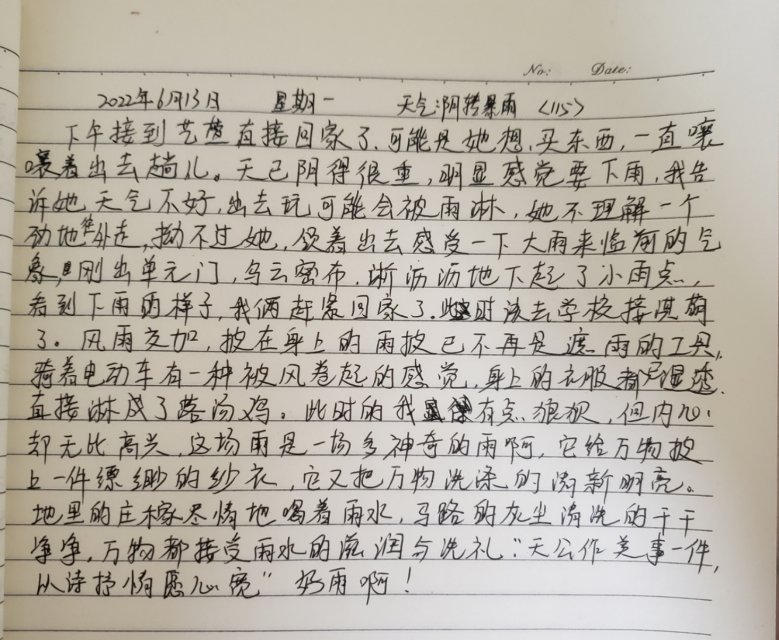 No: Date:
2022年6月13日 星期一 天气:阴转暴雨 <115>
下午接到艺萱直接回家了,可能是她想,买东西,一直嚷
嚷着出去趟儿。天已阴得很重,明显感觉要下雨,我告
诉她天气不好,出去玩可能会被雨淋,她不理解一个
劲地往外走,拗不过她,领着出去感受一下大雨来临前的气
象,刚出单元门,乌云密布,淅沥沥地下起了小雨点,
看到下雨的样子,我俩赶紧回家了.此时该去学校接淇萌
了。风雨交加,披在身上的雨披已不再是遮雨的工具,
骑着电动车有一种被风卷起的感觉,身上的衣服都湿透
直接淋成了落汤鸡。此时的我虽有点狼狈,但内心
却无比高兴,这场雨是一场多神奇的雨啊,它给万物披
上一件缥缈的纱衣,它又把万物洗涤的清新明亮。
地里的庄稼尽情地喝着雨水,马路的灰尘清洗的干干
净净,万物都接受雨水的滋润与洗礼:"天公作美事一件,
从诗抒情愿心宽"好雨啊!